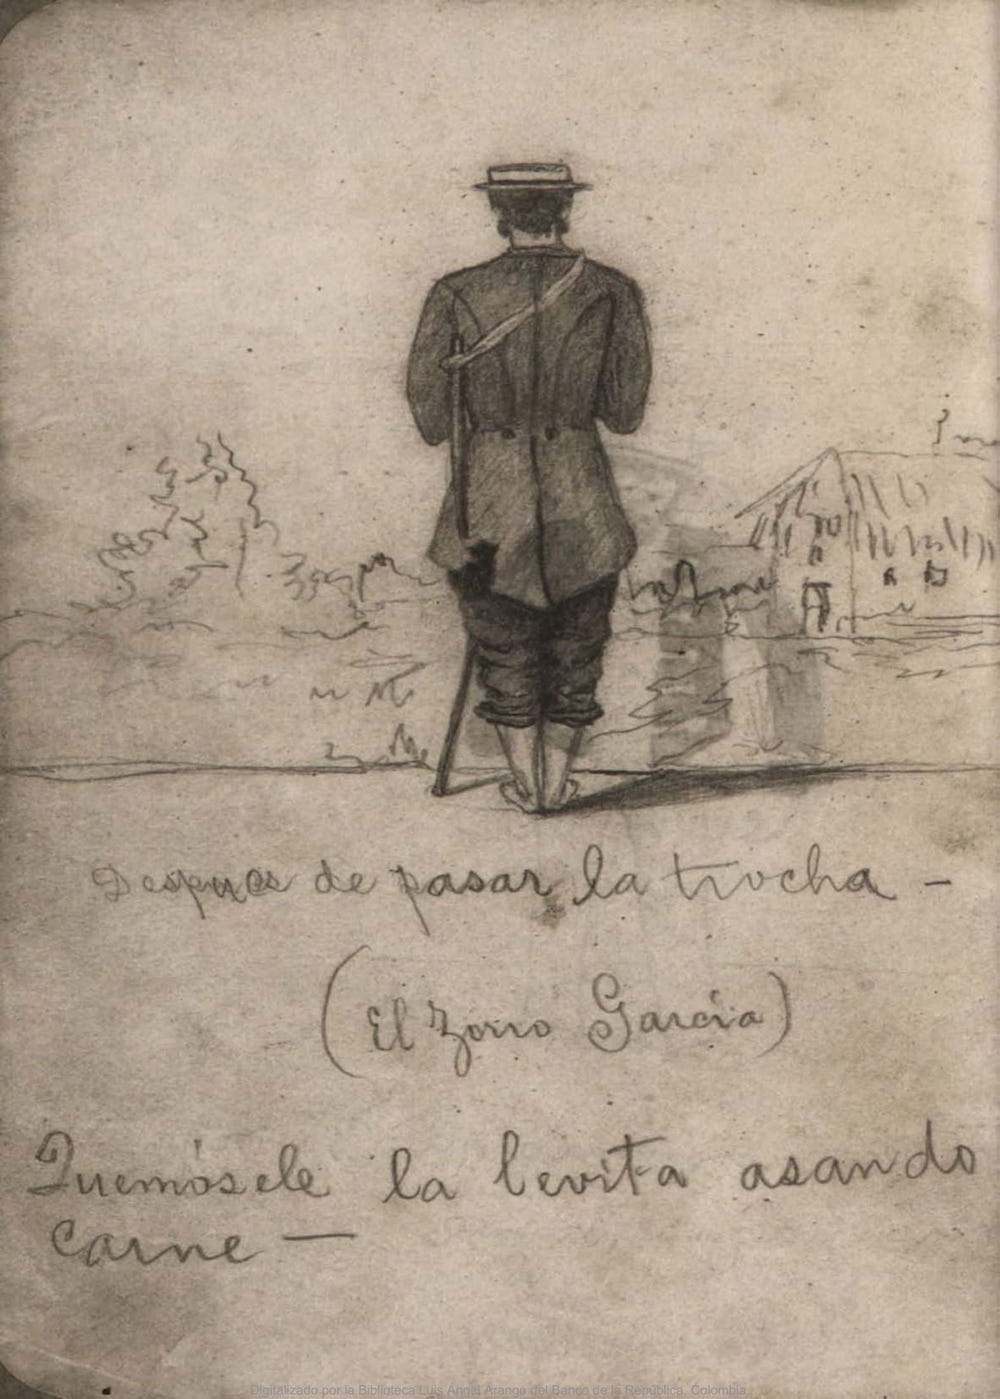 Despues de pasar la trocha -
(El Zorro García)
Quemósele la levita asando
carne —
Digitalizado por la Biblioteca Luis Ángel Arango del Banco de la República, Colombia